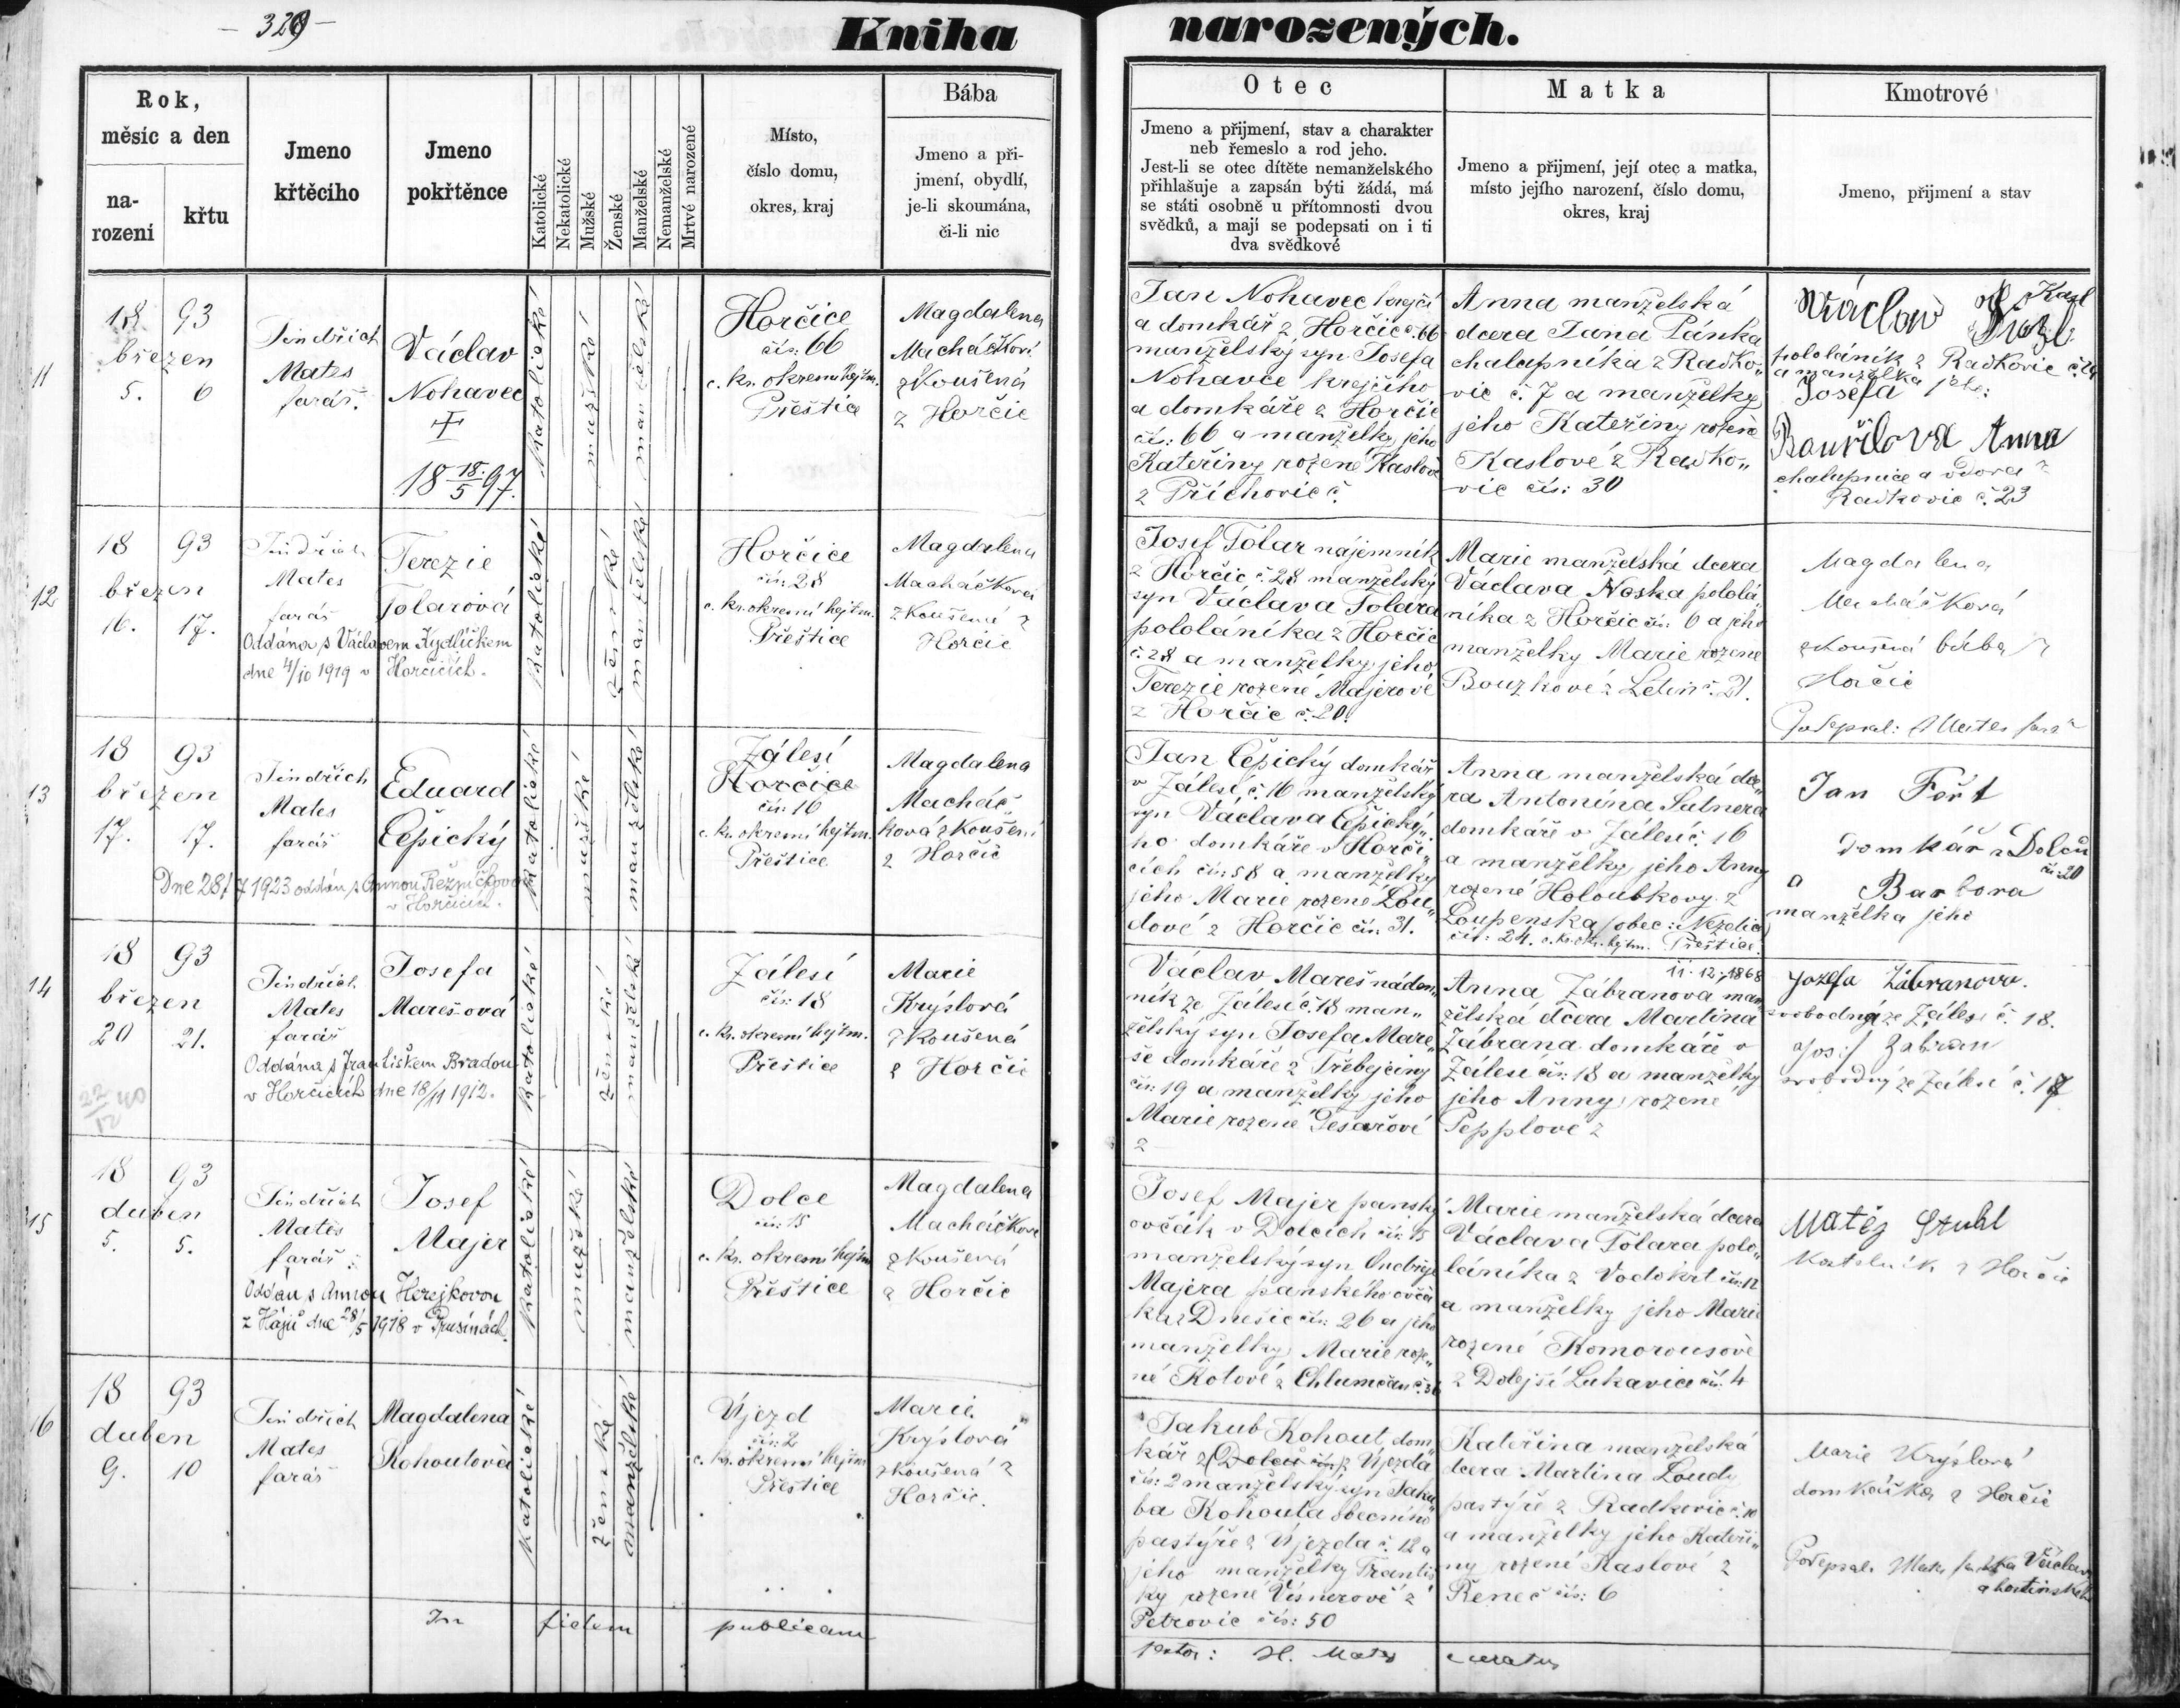 Kniha narozených.
Rok,
měsíc a den
na-
rození
křtu
Jmeno
křtěcího
Jmeno
pokřtěnce
Katolické
Nekatolické
Mužské
Ženské
Manželské
Nemanželské
Mrtvé narozené
Místo,
číslo domu,
okres, kraj
Bába
Jmeno a při-
jmení, obydlí,
je-li skoumána,
či-li nic
Otec
Jmeno a přijmení, stav a charakter
neb řemeslo a rod jeho.
Jest-li se otec dítěte nemanželského
přihlašuje a zapsán býti žádá, má
se státi osobně u přítomnosti dvou
svědků, a mají se podepsati on i ti
dva svědkové
Matka
Jmeno a přijmení, její otec a matka,
místo jejího narození, číslo domu,
okres, kraj
Kmotrové
Jmeno, přijmení a stav
11
18 93
březen
5. 6
Jindřich
Mates
farář.
Václav
Nohavec
18 18/5 97.
Katolické
mužské
manželské
Horčice
čís: 66
c. kr. okresní hejtm.
Přeštice
Magdalena
Macháčková
zkoušená
z Horčic
Jan Nohavec krejčí
a domkář z Horčic č. 66
manželský syn Josefa
Nohavce krejčího
a domkáře z Horčic
čís: 66 a manželky jeho
Kateřiny rozené Kaslové
z Příchovic č.
Anna manželská
dcera Jana Pánka
chalupníka z Radko„
vic č. 7 a manželky
jeho Kateřiny rozené
Kaslové z Radko„
vic čís: 30
Václav
pololáník z Radkovic č. 24
a manželka jeho:
Josefa
Bouřilova Anna
chalupnice a vdova z
Radkovic č. 23
12
18 93
březen
16. 17.
Jindřich
Mates
farář
Terezie
Tolarová
Oddána s Václavem Kydlíčkem
dne 4/10 1919 v Horčicích.
Katolické
ženské
manželské
Horčice
čís: 28
c. kr. okresní hejtm.
Přeštice
Magdalena
Macháčková
zkoušená z
Horčic
Josef Tolar nájemník
z Horčic č. 28 manželský
syn Václava Tolara
pololáníka z Horčic
č. 28 a manželky jeho
Terezie rozené Majerové
z Horčic č. 20.
Marie manželská dcera
Václava Noska pololá
níka z Horčic čís. 6 a jeho
manželky Marie rozené
Bouzkové z Letin č. 21.
Magdalena
Macháčková
zkoušená bába z
Horčic
Podepsal: Mates farář
13
18 93
březen
17. 17.
Jindřich
Mates
farář
Eduard
Čepický
Dne 28/7 1923 oddán s Annou Řezníčkovou
v Horčicích.
Katolické
mužské
manželské
Zálesí
Horčice
čís: 16
c. kr. okresní hejtm.
Přeštice
Magdalena
Macháč
ková zkoušená
z Horčic
Jan Čepický domkář
v Zálesí č. 16 manželský
syn Václava Čepický„
ho domkáře v Horči„
cích čís: 58 a manželky
jeho Marie rozené Lou„
dové z Horčic čís. 31.
Anna manželská dce„
ra Antonína Sutnera
domkáře v Zálesí č. 16
a manželky jeho Anny
rozené Holoubkovy z
Loupenska (obec: Nezdice)
čís: 24. c. kr. okr. hejtm. Přeštice.
Jan Fořt
domkář z Dolců
č: 20
a Barbora
manželka jeho
14
18 93
březen
20 21.
22/12 40
Jindřich
Mates
farář
Josefa
Marešová
Oddána s Františkem Bradou
v Horčicích dne 18/11 1912.
Katolické
ženské
manželské
Zálesí
čís: 18
c. kr. okresní hejtm.
Přeštice
Marie
Kryslová
zkoušená
z Horčic
Václav Mareš náden„
ník ze Zálesí č. 18 man„
želský syn Josefa Mare„
še domkáře z Třebejciny
čís: 19 a manželky jeho
Marie rozené Tesařové
z
11. 12. 1868
Anna Zábranova man„
želská dcera Martina
Zábrana domkáře v
Zálesí čís: 18 a manželky
jeho Anny rozené
Pepplové z
Jozefa Zábranova.
svobodná ze Zálesí č. 18.
Josef Zabran
svobodný ze Zálesí č. 17
15
18 93
duben
5. 5.
Jindřich
Mates
farář
Josef
Majer
Oddán s Annou Herejkovou
z Hájů dne 28/5 1918 v Prusinách.
Katolické
mužské
manželské
Dolce
čís: 15
c. kr. okresní hejtm
Přeštice
Magdalena
Macháčkova
zkoušená
z Horčic
Josef Majer panský
ovčák v Dolcích čís: 15
manželský syn Ondřeje
Majera panského ovčá
ka z Dnešic čís: 26 a jeho
manželky Marie roze„
né Kotové z Chlumčan
Marie manželská dcera
Václava Tolara polo„
láníka z Vodokrt čís: 12
a manželky jeho Marie
rozené Komorousové
z Dolejší Lukavice čís: 4
Matěj Stuhl
Kostelník z Horčic
16
18 93
duben
9. 10
Jindřich
Mates
farář
Magdalena
Kohoutová
Katolické
ženské
manželské
Újezd
čís: 2
c. kr. okresní hejtm
Přeštice
Marie
Kryslová
zkoušená z
Horčic.
Jakub Kohout dom„
kář z (Dolců čís) z Újezda
čís: 2 manželský syn Jaku„
ba Kohouta obecního
pastýře z Újezda č. 12 a
jeho manželky Františ
ky rozené Visnerové z
Petrovic čís: 50
Kateřina manželská
dcera Martina Loudy
pastýře z Radkovic č. 10
a manželky jeho Kateři„
ny rozené Kaslové z
Řeneč čís: 6
Marie Kryslová
domkářka z Horčic
In fidem publicam
H. Mates curatus